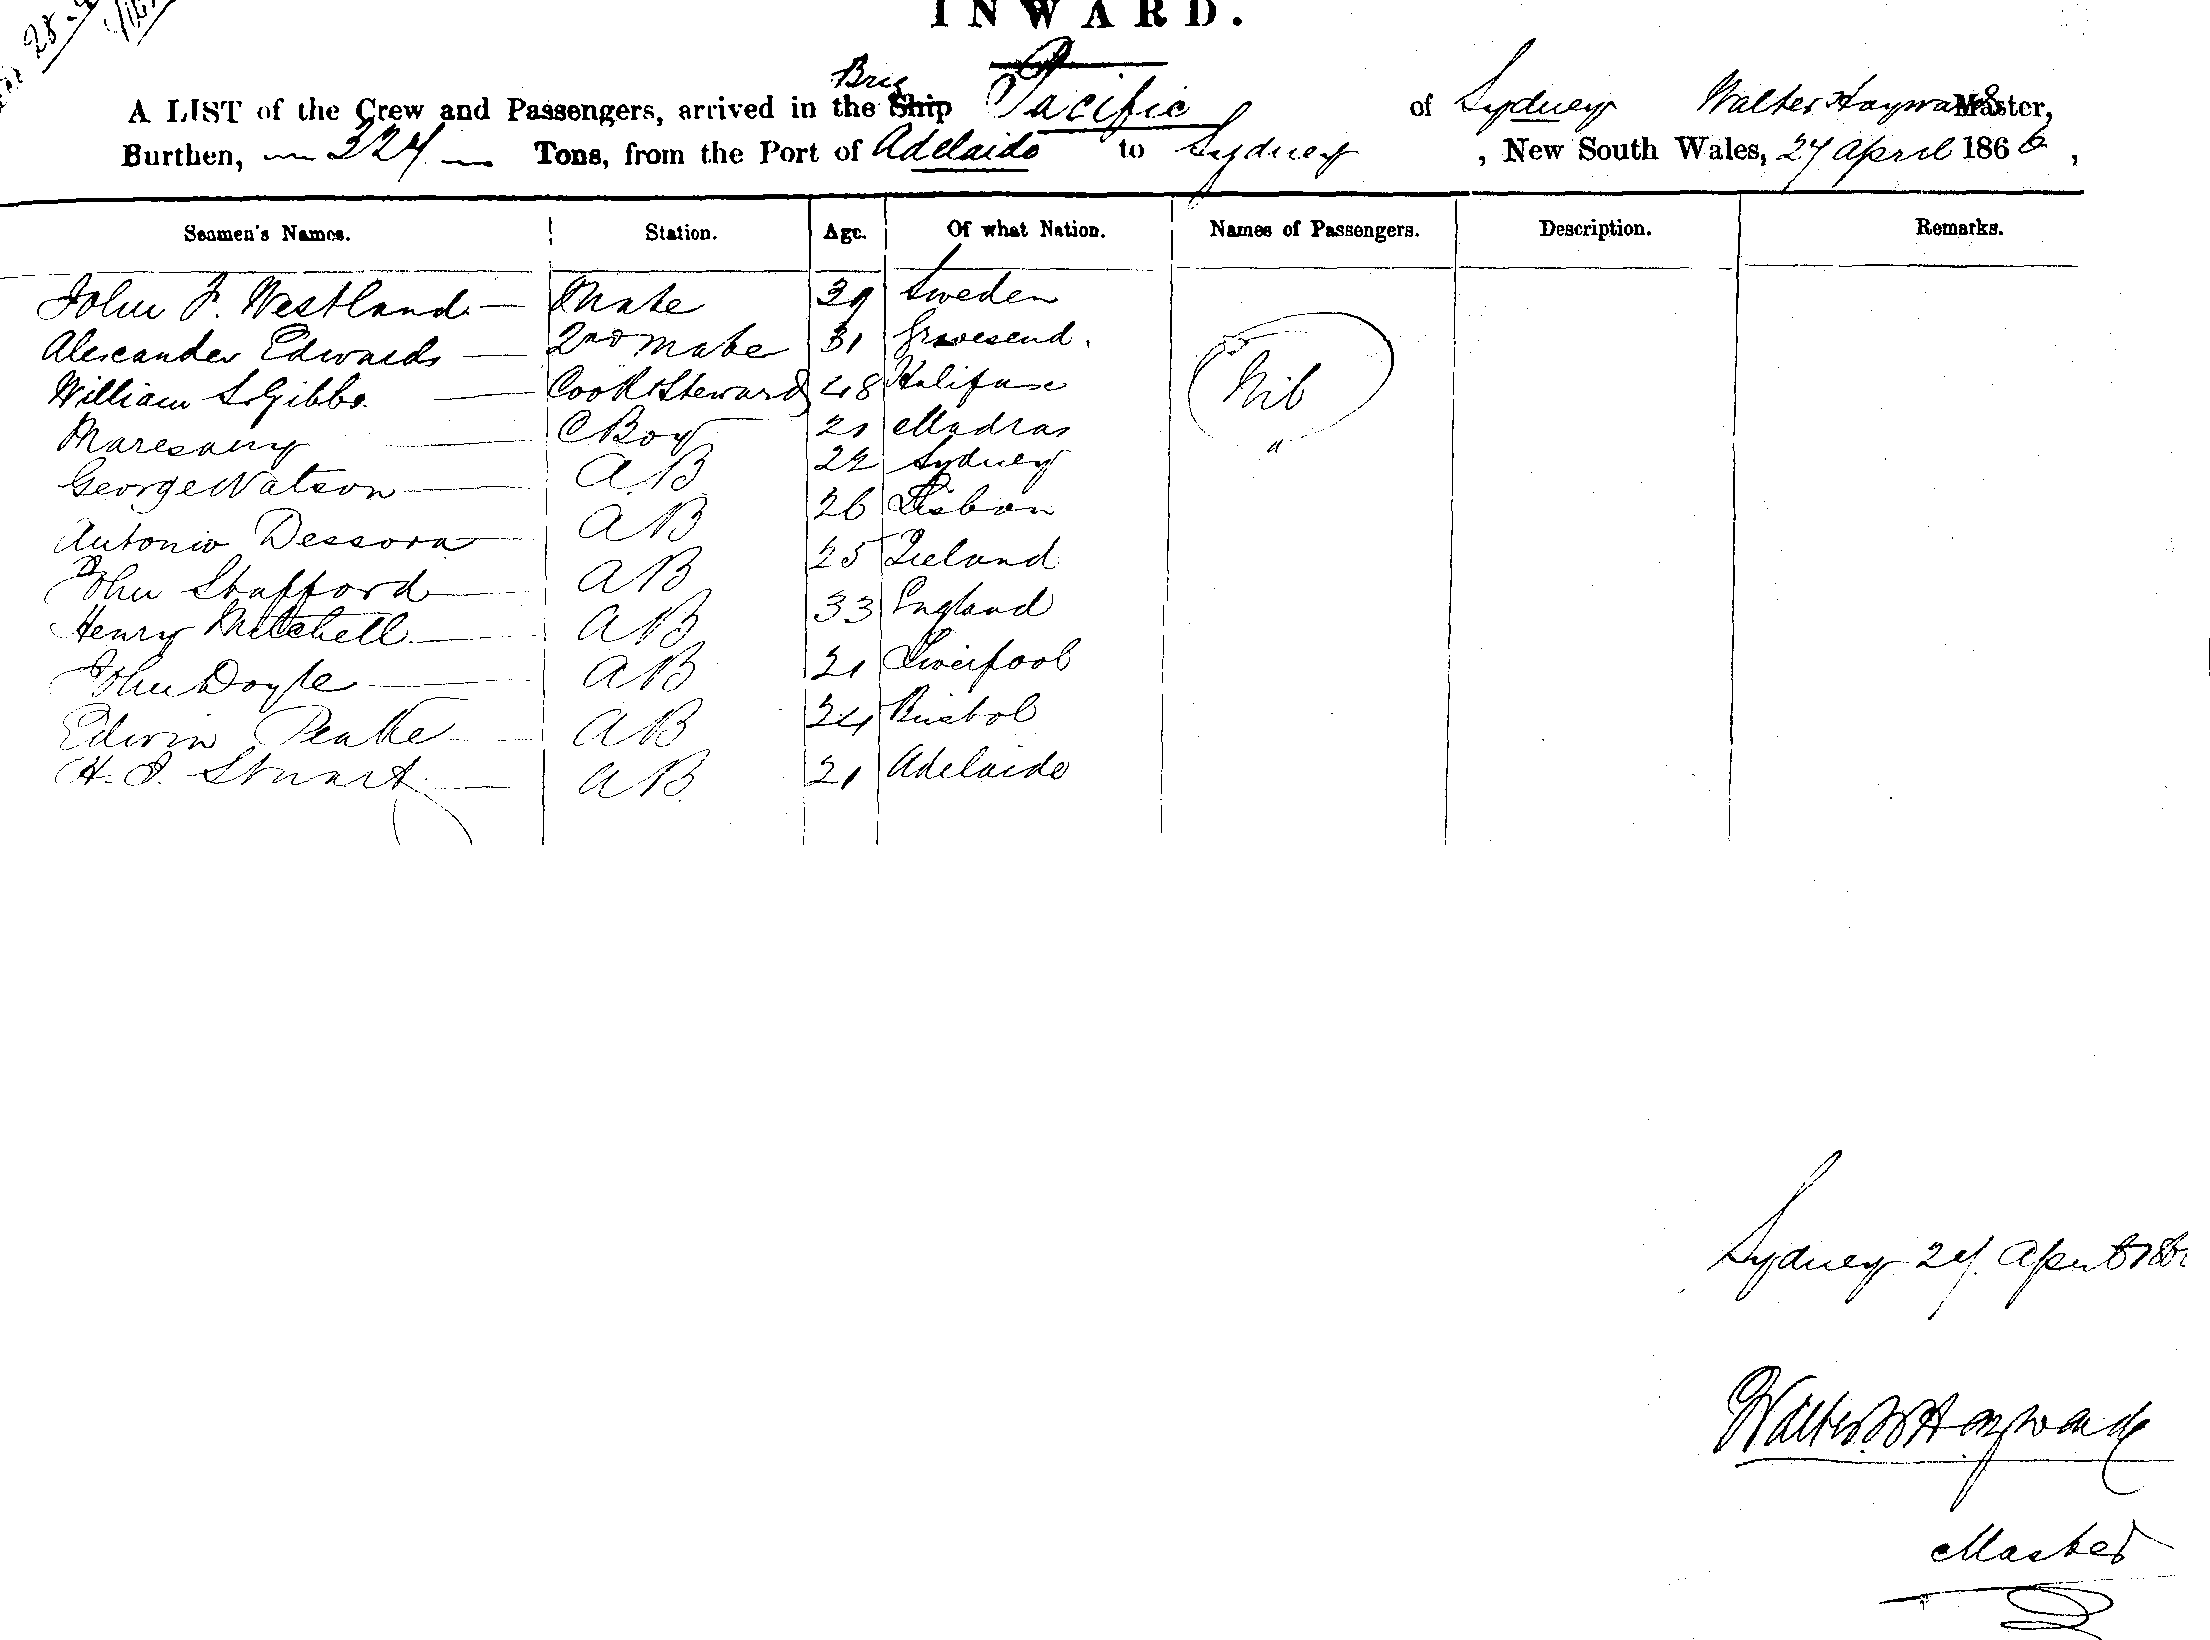 28-4
INWARD.
A LIST of the Crew and Passengers, arrived in the Ship Brig Pacific of Sydney Walter Hayward Master,
Burthen, 324 Tons, from the Port of Adelaide to Sydney, New South Wales, 27 April 1866,
Seamen's Names. Station. Age. Of what Nation. Names of Passengers. Description. Remarks.
John F. Westland Mate 39 Sweden
Alexander Edwards 2nd Mate 31 Gravesend.
William S Gibbs. Cook & Steward 48 Halifax
Maresamy C Boy 21 Madras
Nil
George Watson A.B 22 Sydney
Antonio Dessora AB 26 Lisbon
John Stafford AB 25 Ireland
Henry Mitchell AB 33 England
John Doyle AB 21 Liverpool
Edwin Peake AB 24 Bristol
H. J. Stuart AB 21 Adelaide
Sydney 27 April
Walter Hayward
Master